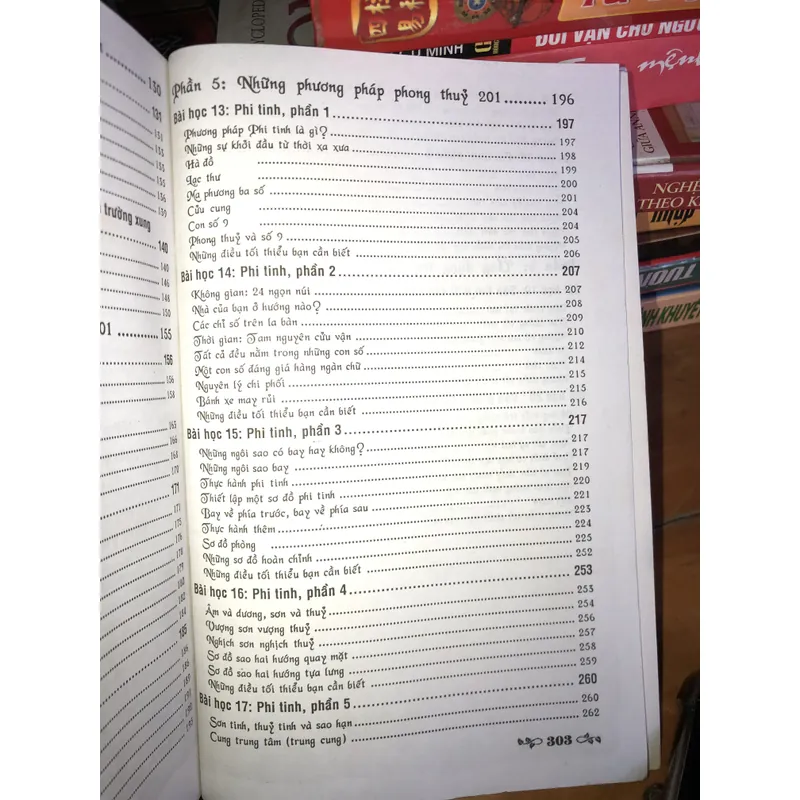 CYCLOPED
Ủ MINH
ĐỔI VẬN CHO NGƯ
mệnh
GIỮA ANN
NGHỆ
THEO K
NHẬP
TƯỚN
NH KHUYẾT
150
131
151
154
155
155
156
159
trường xung
140
140
146
148
150
01 ............ 155
156
156
158
163
166
170
171
173
175
176
178
179
180
182
184
185
186
188
191
193
195
Phần 5: Những phương pháp phong thuỷ 201 ......... 196
Bài học 13: Phi tinh, phần 1 ........ 197
Phương pháp Phi tinh là gì? ........ 197
Những sự khởi đầu từ thời xa xưa ........ 198
Hà đồ ........ 199
Lạc thư ........ 200
Ma phương ba số ........ 201
Cửu cung ........ 204
Con số 9 ........ 204
Phong thuỷ và số 9 ........ 205
Những điều tối thiểu bạn cần biết ........ 206
Bài học 14: Phi tinh, phần 2 ........ 207
Không gian: 24 ngọn núi ........ 207
Nhà của bạn ở hướng nào? ........ 208
Các chỉ số trên la bàn ........ 209
Thời gian: Tam nguyên cửu vận ........ 210
Tất cả đều nằm trong những con số ........ 212
Một con số đáng giá hàng ngàn chữ ........ 214
Nguyên lý chi phối ........ 215
Bánh xe may rủi ........ 215
Những điều tối thiểu bạn cần biết ........ 216
Bài học 15: Phi tinh, phần 3 ........ 217
Những ngôi sao có bay hay không? ........ 217
Những ngôi sao bay ........ 217
Thực hành phi tinh ........ 219
Thiết lập một sơ đồ phi tinh ........ 220
Bay về phía trước, bay về phía sau ........ 221
Thực hành thêm ........ 223
Sơ đồ phòng ........ 224
Những sơ đồ hoàn chỉnh ........ 225
Những điều tối thiểu bạn cần biết ........ 252
Bài học 16: Phi tinh, phần 4 ........ 253
Âm và dương, sơn và thuỷ ........ 253
Vượng sơn vượng thuỷ ........ 254
Nghịch sơn nghịch thuỷ ........ 256
Sơ đồ sao hai hướng quay mặt ........ 257
Sơ đồ sao hai hướng tựa lưng ........ 258
Những điều tối thiểu bạn cần biết ........ 259
Bài học 17: Phi tinh, phần 5 ........ 260
Sơn tinh, thuỷ tinh và sao hạn ........ 260
Cung trung tâm (trung cung) ........ 262
303